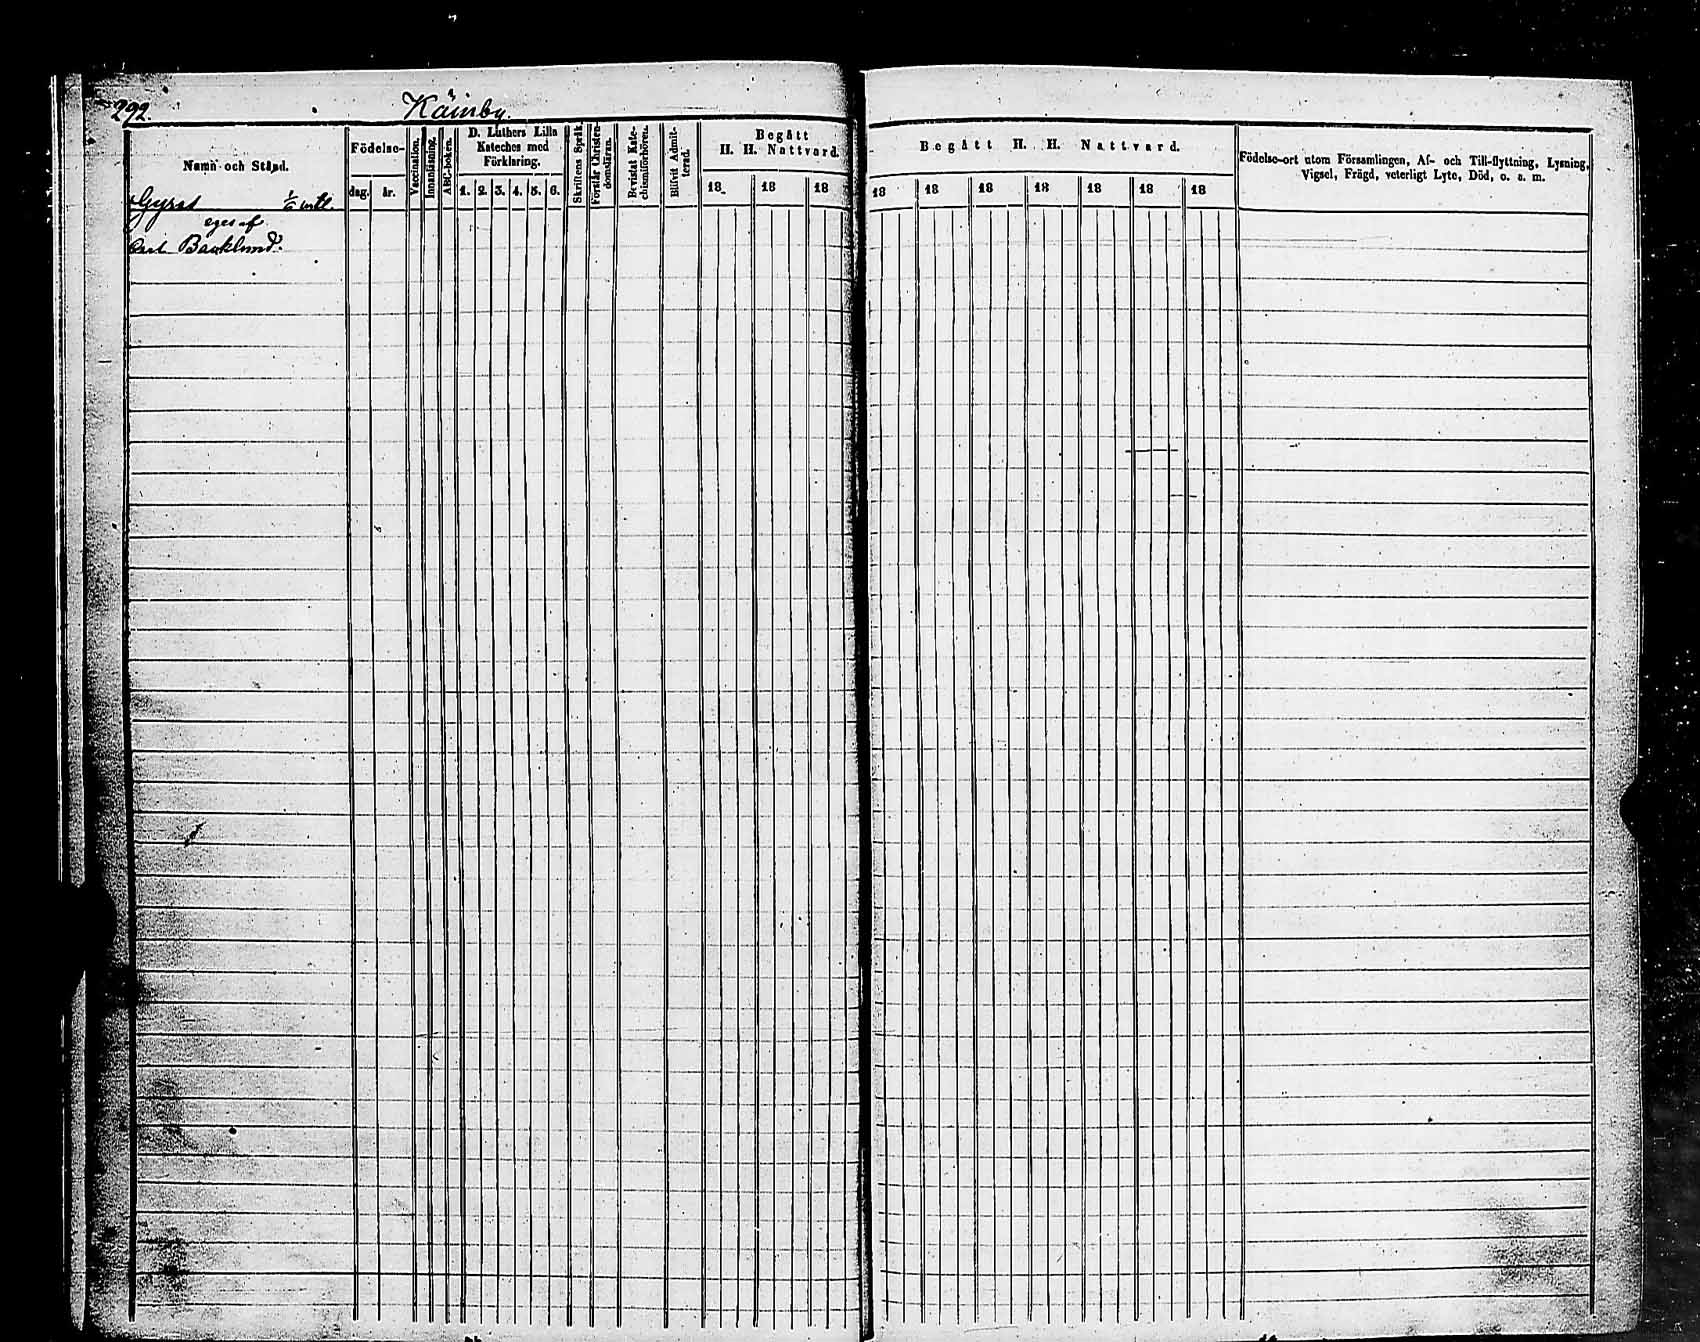 292.
Käinby.
Namn och Stånd.
Födelse-
dag. år.
Vaccination.
Innanläsning.
ABC-boken.
D. Luthers Lilla
Kateches med
Förklaring.
1. 2. 3. 4. 5. 6.
Skriftens Språk.
Förstår Christen-
domsläran.
Bevistat Kate-
chismiförhören.
Blifvit Admit-
terad.
Begått
H. H. Nattvard.
18 18 18
Begått H. H. Nattvard.
18 18 18 18 18 18 18
Födelse-ort utom Församlingen, Af- och Till-flyttning, Lysning,
Vigsel, Frägd, veterligt Lyte, Död, o. s. m.
1/6 mtl.
eges af
Backlund.